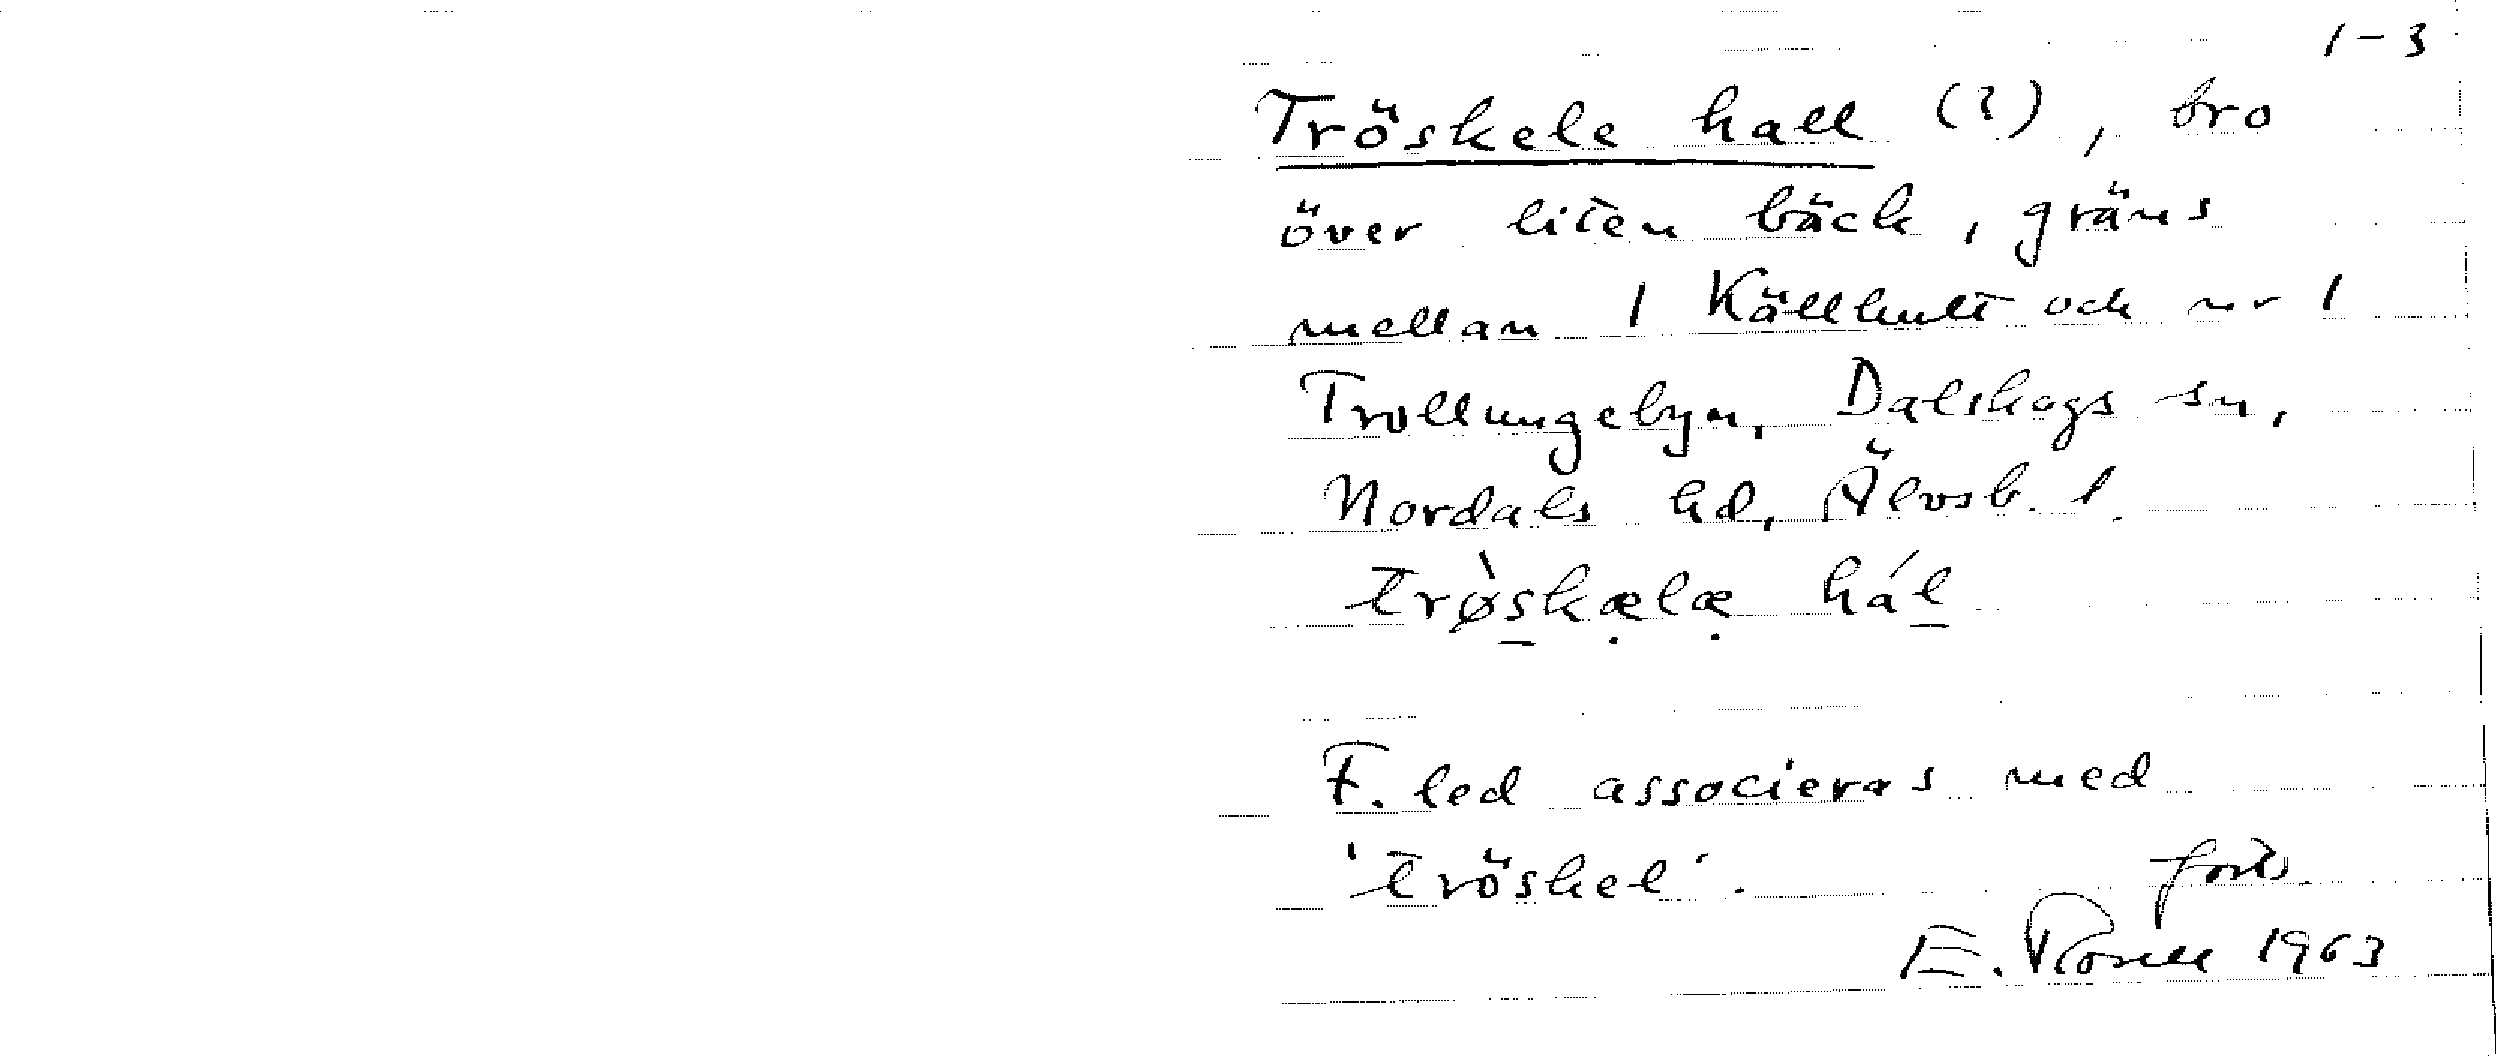 1-3
Tröskele hall (?), bro
över liten bäck, gräns
mellan 1 Källhult och nr 1
Trollungebyn, Dalskogs sn,
Nordals hd, Älvsb. l.
trø̀skælæ hál
F. led associeras med
'tröskel'. forts.
E. Rosell 1963